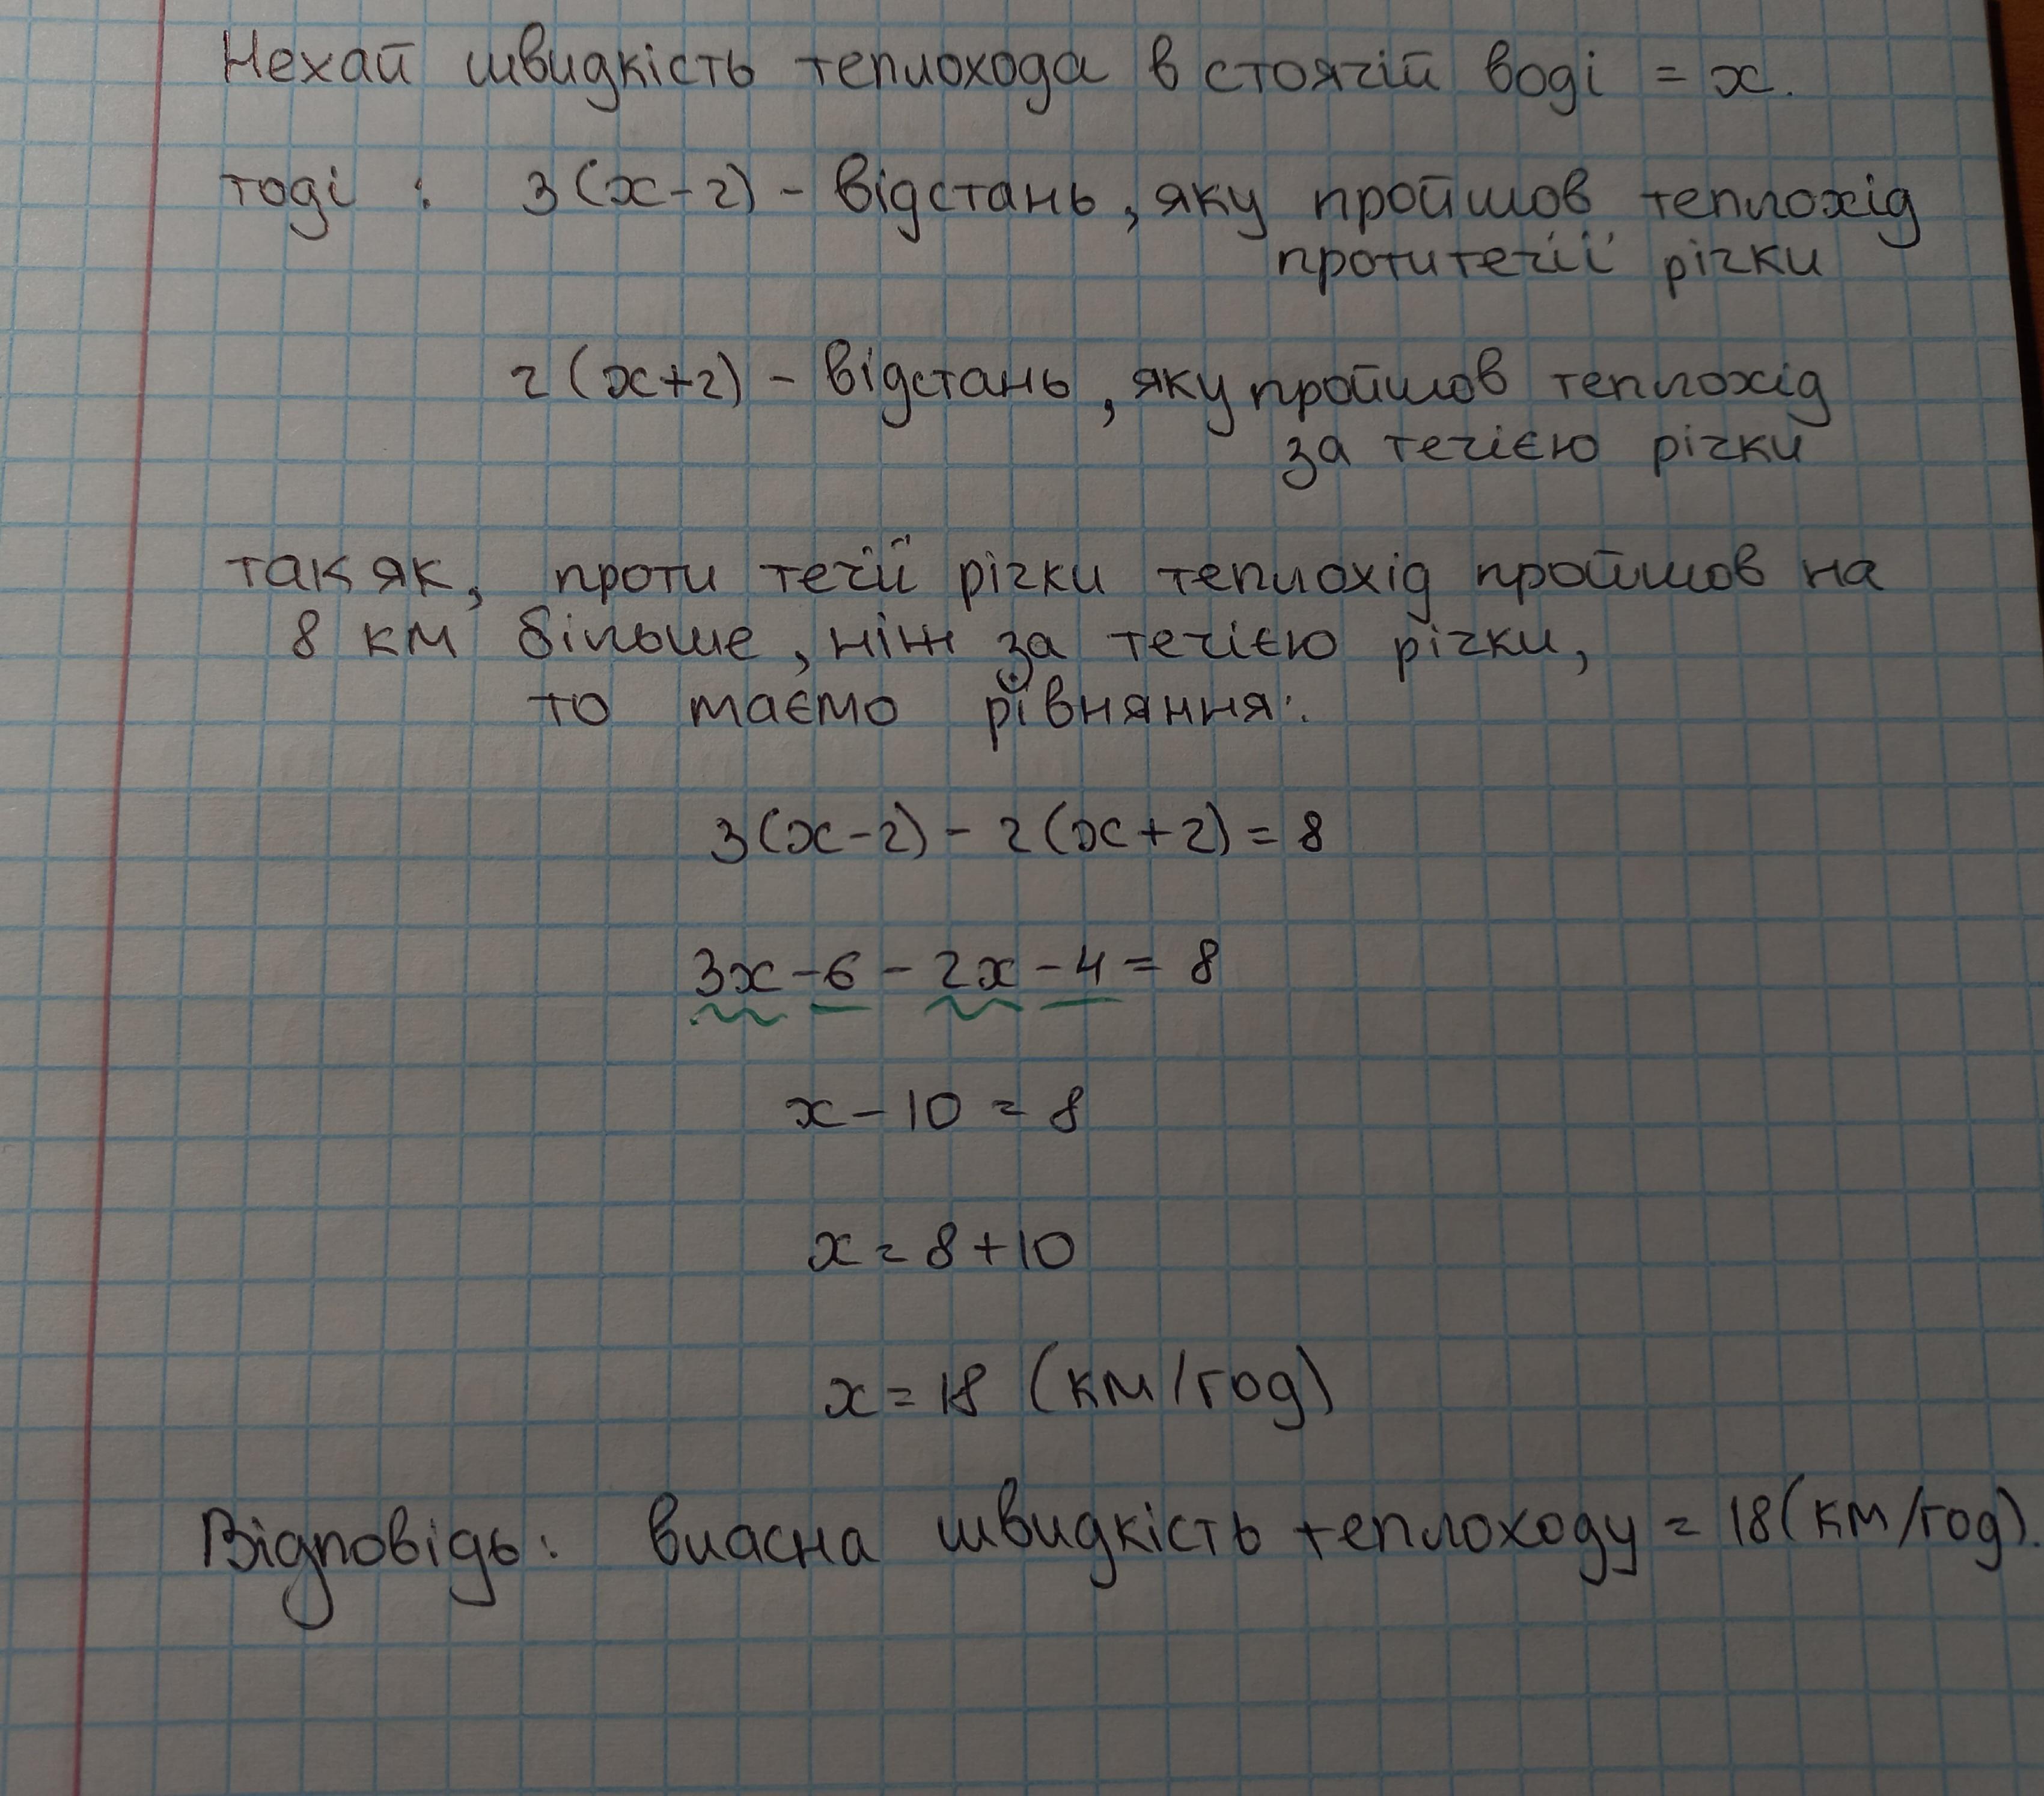 Нехай швидкість теплохода в стоячій воді = x.
тоді : 3(x-2) - відстань, яку пройшов теплохід
проти течії річки
2(x+2) - відстань, яку пройшов теплохід
за течією річки
так як, проти течії річки теплохід пройшов на
8 км більше, ніж за течією річки,
то маємо рівняння:
3(x-2) - 2(x+2) = 8
3x - 6 - 2x - 4 = 8
x - 10 = 8
x = 8 + 10
x = 18 (км/год)
Відповідь: власна швидкість теплоходу = 18 (км/год).